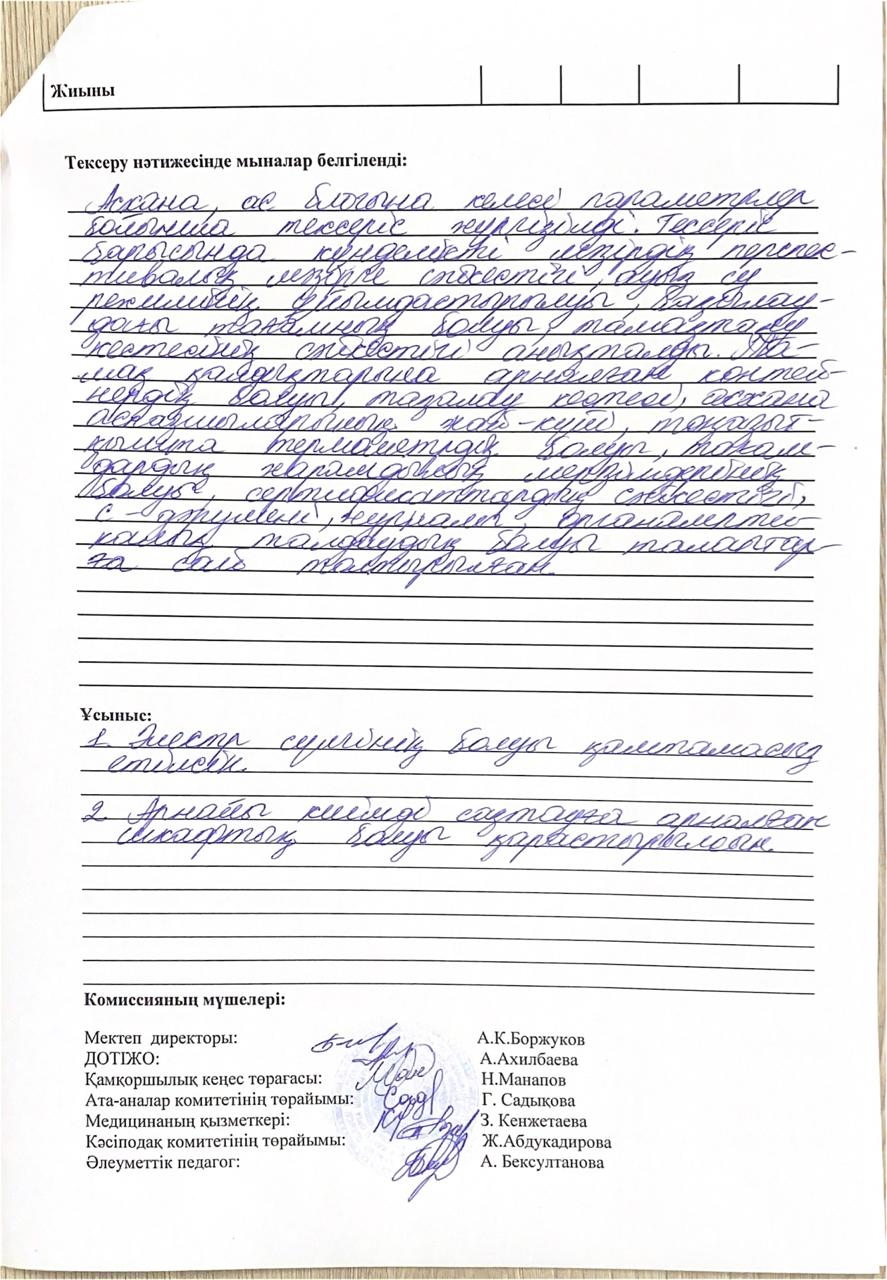 Жиыны
Тексеру нәтижесінде мыналар белгіленді:
Асхана, ас блогына келесі параметрлер
бойынша тексеріс жүргізілді. Тексеріс
барысында күнделікті мәзірдің перспек-
тивалық мәзірге сәйкестігі, ауыз су
режимінің ұйымдастырылуы, бақылау-
дағы тағамның болуы, тамақтану
кестесінің сәйкестігі анықталды. Та-
мақ қалдықтарына арналған контей-
нердің болуы, тазалау кестесі, асхана
аспазшыларының жай-күйі, тоңазыт-
қышта термометрдің болуы, тағам-
дардың жарамдылық мерзімдерінің
болуы, сертификаттардың сәйкестігі,
с - друмені, журналы, органолепти-
калық талдаудың болуы талаптар-
ға сай толтырылған.
Ұсыныс:
1. Электр сүлгінің болуы қамтамасыз
етілсін.
2. Арнайы киімді сақтауға арналған
шкафтың болуы қарастырылсын.
Комиссияның мүшелері:
Мектеп директоры: А.К.Боржуков
ДОТІЖО: А.Ахилбаева
Қамқоршылық кеңес төрағасы: Н.Манапов
Ата-аналар комитетінің төрайымы: Г. Садықова
Медицинаның қызметкері: З. Кенжетаева
Кәсіподақ комитетінің төрайымы: Ж.Абдукадирова
Әлеуметтік педагог: А. Бексултанова